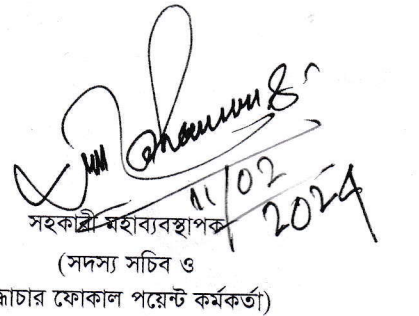 11/02
2024
সহকারী মহাব্যবস্থাপক
(সদস্য সচিব ও
দ্ধাচার ফোকাল পয়েন্ট কর্মকর্তা)